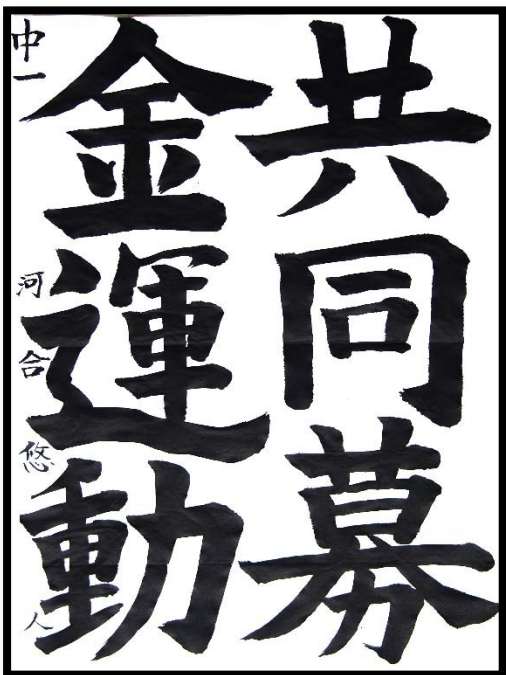 共同募
金運動
中一 河合悠人